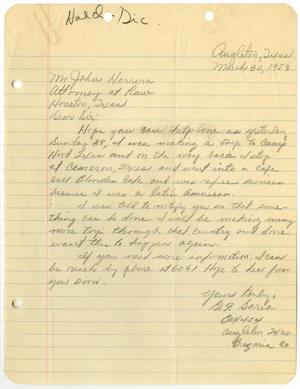 Hold - Sic.
Angleton, Texas
March 30, 1953
Mr. John Herrera
Attorney at Law
Houston, Texas
Dear Sir:
Hope you can help me as yesterday
Sunday 29, I was making a trip to Camp
Hood Texas and on the way back I stop
at Cameron, Texas and went into a cafe
call Blondie Cafe and was refuse services
because I was a Latin American.
I was told to notify you so that some-
thing can be done. I will be making many
more trips through that country and dont
want this to happen again.
If you need more information I can
be reach by phone at 6061. Hope to hear from
you soon.
Yours truly,
Angleton Texas
Brazoria Co.